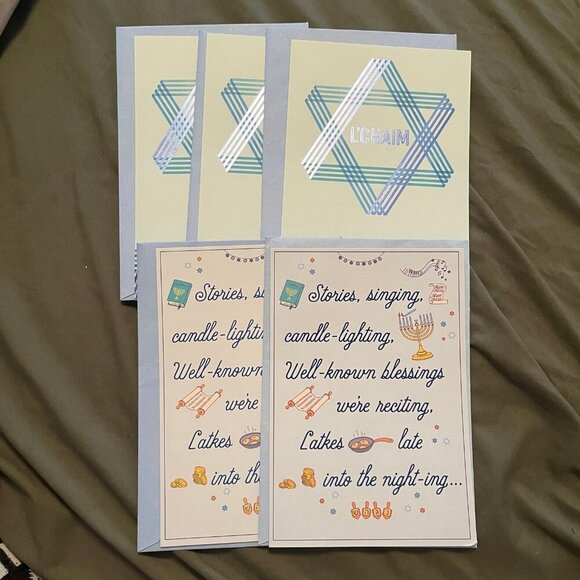 L'CHAIM
Stories, s
candle-lightin
Well-known
we're
Latkes
into th
Stories, singing,
candle-lighting,
Well-known blessings
we're reciting,
Latkes late
into the night-ing...